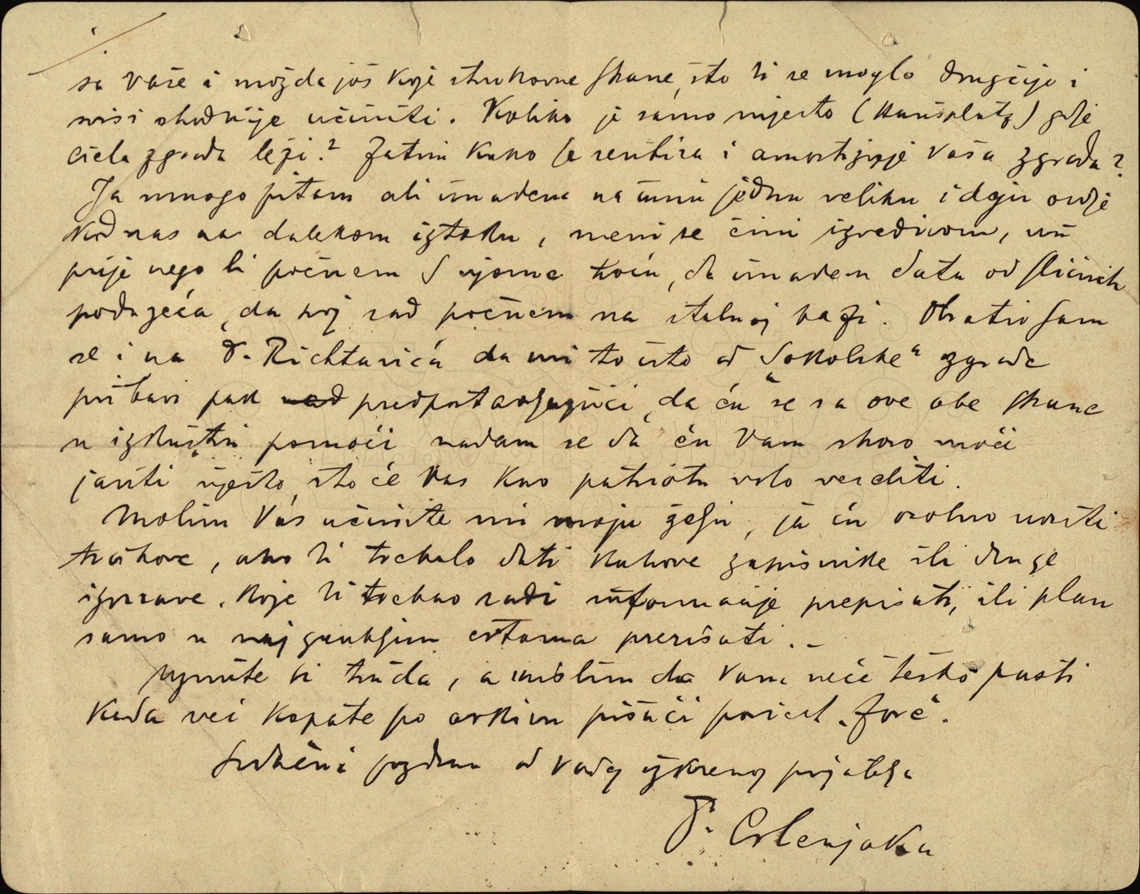 sa vaše i možda još koje strukovne strane, što bi se moglo drugčije i
svrsi shodnije učiniti. Koliko je samo mjesto (Hausplatz) gdje
ciela zgrada leži? Zatim kako se rentira i amortizuje Vaša zgrada?
Ja mnogo pitam ali imadem na umu jednu veliku ideju ovdje
kod nas na dalekom iztoku, meni se čini izvedivom, no
prije nego li počnem s njome hoću, da imadem data od sličnih
poduzeća, da moj rad počnem na stalnoj bazi. Obratio sam
se i na Dr. Richtarića da mi to isto od "Sokolske" zgrade
pribavi pak predpostavljajući, da ću se sa ove obe strane
u izkustvu pomoći nadam se da ću Vam skoro moći
javiti nješto, što će Vas kao patriotu vrlo veseliti.
Molim Vas učinite mi moju želju, ja ću osobno nositi
troškove, ako bi trebalo dati kakove zapisnike ili druge
izprave, koje bi trebao radi informacije prepisati, ili plan
samo u najgrubljim crtama prerisati. –
Uzmite si truda, a mislim da Vam neće teško pasti
kada već kopate po arkivu pišući poviest "Zore".
Srdačni pozdrav od Vašeg izkrenog prijatelja
Dr. Crlenjaka